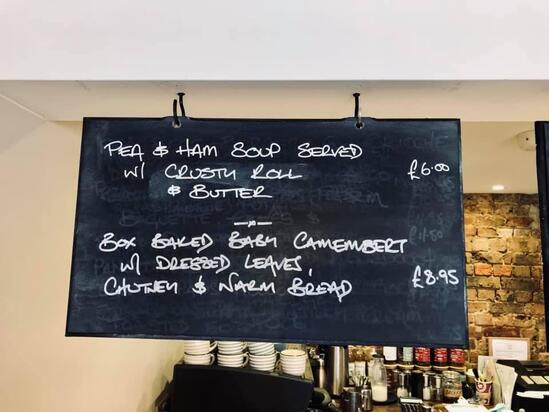 PEA & HAM SOUP SERVED
W/ CRUSTY ROLL £6.00
& BUTTER
BOX BAKED BABY CAMEMBERT
W/ DRESSED LEAVES,
CHUTNEY & WARM BREAD £8.95